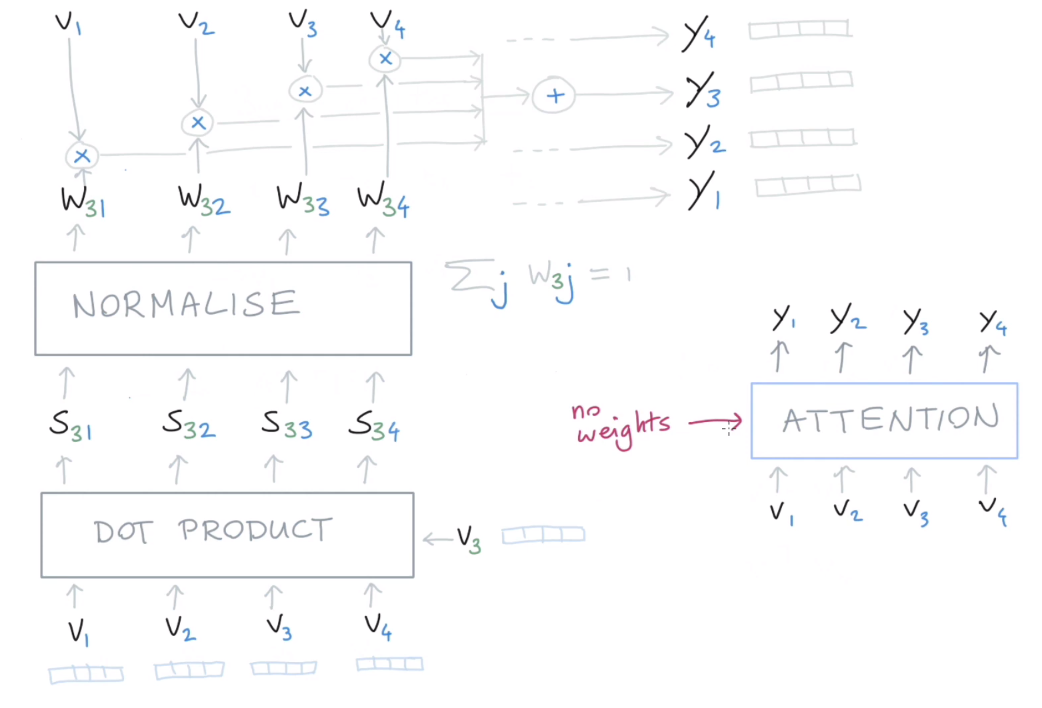 V1 V2 V3 V4
x x x x
+
y4
y3
y2
y1
W31 W32 W33 W34
NORMALISE
Σj W3j = 1
S31 S32 S33 S34
DOT PRODUCT
V3
V1 V2 V3 V4
y1 y2 y3 y4
no
weights
ATTENTION
V1 V2 V3 V4